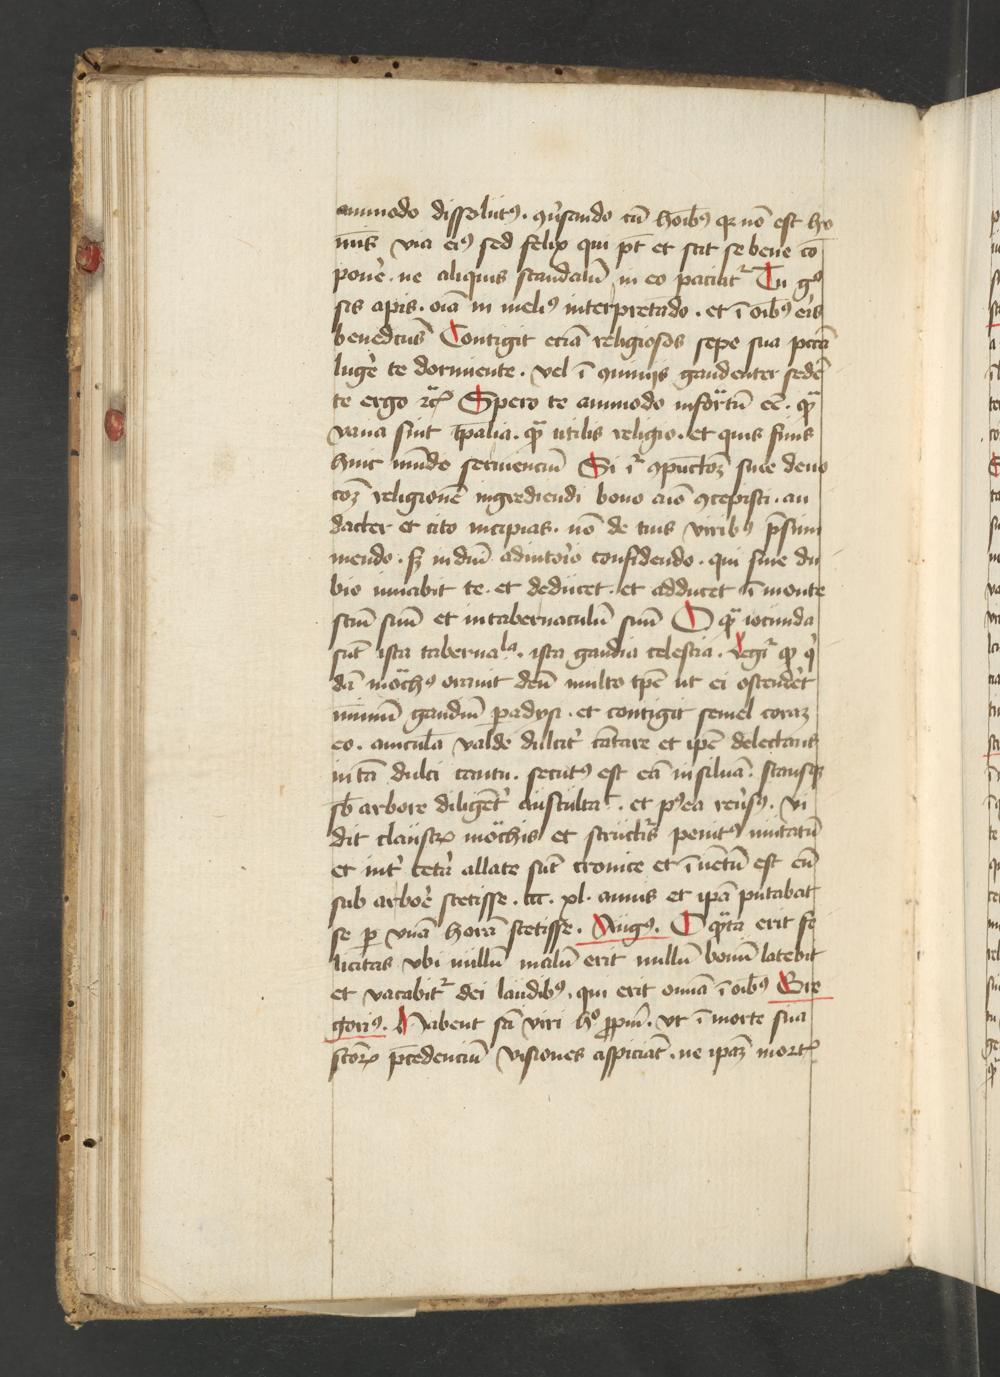 ammodo dissolutꝰ. ꝯuersando cū hoībꝰ qr nō est ho
mīs via eiꝰ sed felix qui pt̄ et scit se bene cō
ponēre. ne aliquis scandalū in eo paciat᷑ Tu gͦ
sis apis. oīa in meliꝰ interpretādo. et ī oībꝰ eis
benedcūs Contigit eciā religiosos sepe sua pctā
lugēre te dormiente. vel ī ꝯuiuijs gaudenter sedē
te ergo ⁊c̄ Spero te ammodo infortū eē. qͣ̄
vana sint tp̄alia. qͣ̄ utilis religio. et quis finis
huic mūdo seruienciū Si ī᷑ ꝯpūctōꝫ siue deuo
coꝫ religionē ingrediendi bono aīo ꝯcepisti. au
dacter et cito incipias. nō de tuis viribꝰ p̄sum
mendo. sꝫ in dīni adiutorio confidendo. qui sine du
bio iuuabit te. et deducet. et adducet ī monte
sctm̄ suū et in tabernaculū suū O qͣ̄ iocunda
sūt ista tabernaͨla. ista gaudia celestia. Legit᷑ ꝙ qͥ
dā mōchꝰ orauit deū multo tp̄e ut ei ostenderet
mimū gaudiū ꝑadysi. et contigit semel coraꝫ
eo. auiculā valde dulcit᷑ cātare et ip̄e delectans
in tā dulci cantu. secutꝰ est eā in siluā. stansqꝫ
sb̄ arbore diligēt᷑ ausculta᷑. et pꝰea reūsꝰ. vi
dit claustꝝ mōchis et structīs penitꝰ mutatū
et int᷑ cetā allate sūt cronice et īuētū est eū
sub arboē stetisse. ccc. xl. annis et ipā putabat
se ꝑ vnā horā stetisse. Augꝰ. O qͣ̄ta erit fe
licitas vbi nullū malū erit nullū bonū latebit
et vacabit᷑ dei laudibꝰ. qui erit omīa ī oībꝰ Gre
goriꝰ. Habent sctī viri hͦ ꝓpriū. vt ī morte sua
sctōꝝ p̄cedenciū visiones aspiciāt. ne ipāꝫ mort᷑